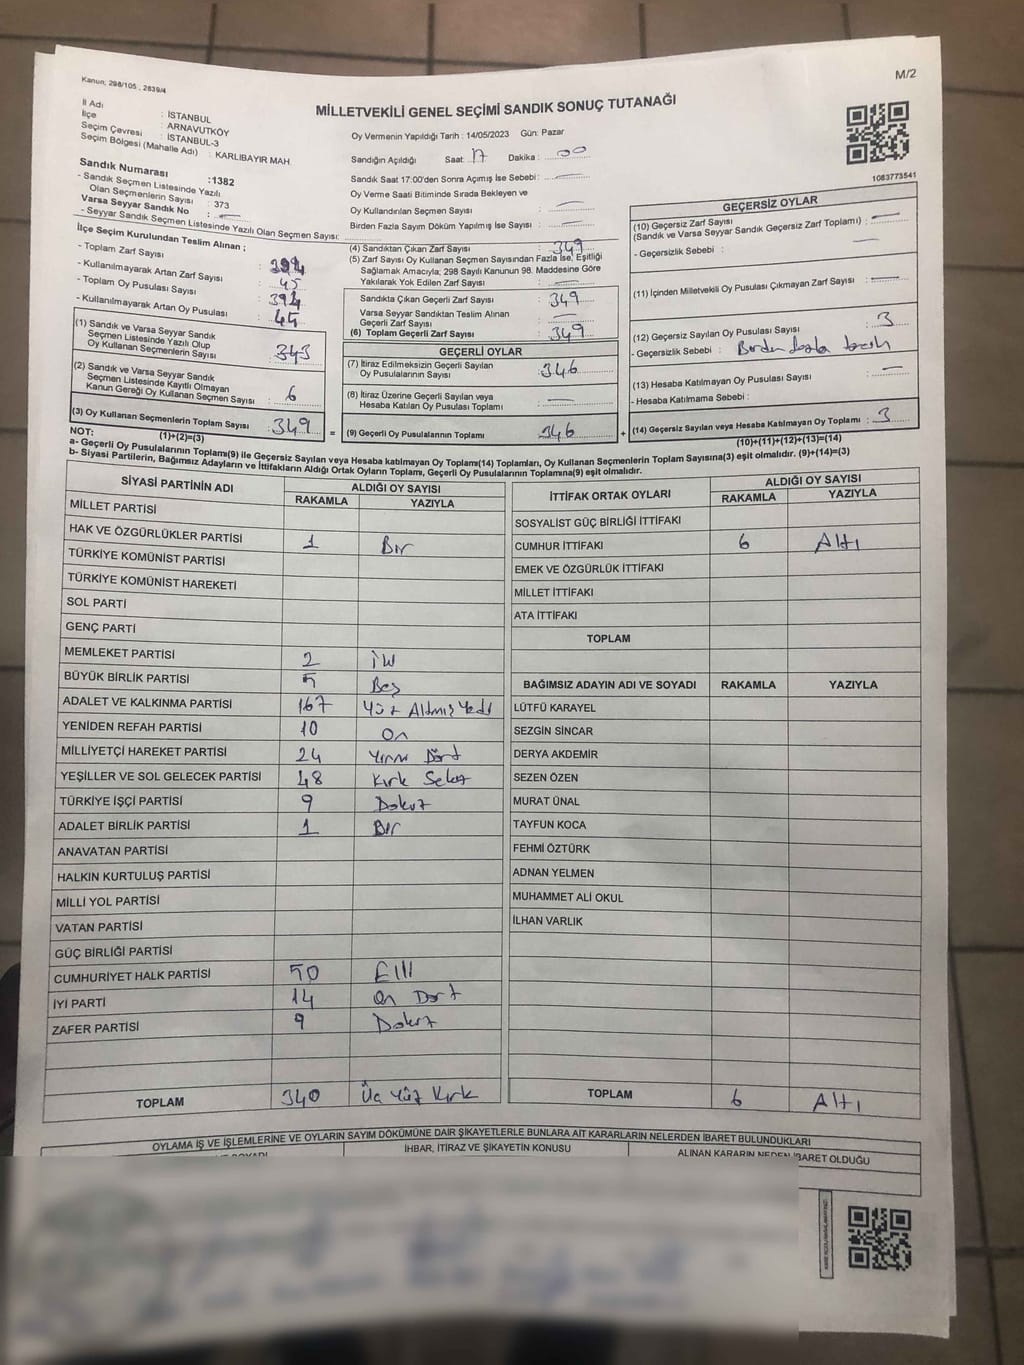 Kanun; 298/105 , 2839/4
M/2
MİLLETVEKİLİ GENEL SEÇİMİ SANDIK SONUÇ TUTANAĞI
İl Adı : İSTANBUL
İlçe : ARNAVUTKÖY
Seçim Çevresi : İSTANBUL-3
Seçim Bölgesi (Mahalle Adı) : KARLIBAYIR MAH
Sandık Numarası :1382
- Sandık Seçmen Listesinde Yazılı
Olan Seçmenlerin Sayısı : 373
Varsa Seyyar Sandık No : —
- Seyyar Sandık Seçmen Listesinde Yazılı Olan Seçmen Sayısı:
Oy Vermenin Yapıldığı Tarih : 14/05/2023 Gün: Pazar
Sandığın Açıldığı Saat : 17 Dakika : 00
Sandık Saat 17:00'den Sonra Açılmış İse Sebebi : —
Oy Verme Saati Bitiminde Sırada Bekleyen ve
Oy Kullandırılan Seçmen Sayısı : —
Birden Fazla Sayım Döküm Yapılmış İse Sayısı : —
1083773541
İlçe Seçim Kurulundan Teslim Alınan ;
- Toplam Zarf Sayısı : 394
- Kullanılmayarak Artan Zarf Sayısı : 45
- Toplam Oy Pusulası Sayısı : 394
- Kullanılmayarak Artan Oy Pusulası : 45
(1) Sandık ve Varsa Seyyar Sandık
Seçmen Listesinde Yazılı Olup
Oy Kullanan Seçmenlerin Sayısı : 343
(2) Sandık ve Varsa Seyyar Sandık
Seçmen Listesinde Kayıtlı Olmayan
Kanun Gereği Oy Kullanan Seçmen Sayısı : 6
(3) Oy Kullanan Seçmenlerin Toplam Sayısı : 349
(1)+(2)=(3)
(4) Sandıktan Çıkan Zarf Sayısı : 349
(5) Zarf Sayısı Oy Kullanan Seçmen Sayısından Fazla İse, Eşitliği
Sağlamak Amacıyla; 298 Sayılı Kanunun 98. Maddesine Göre
Yakılarak Yok Edilen Zarf Sayısı : —
Sandıkta Çıkan Geçerli Zarf Sayısı : 349
Varsa Seyyar Sandıktan Teslim Alınan
Geçerli Zarf Sayısı : —
(6) Toplam Geçerli Zarf Sayısı : 349
GEÇERLİ OYLAR
(7) İtiraz Edilmeksizin Geçerli Sayılan
Oy Pusulalarının Sayısı : 346
(8) İtiraz Üzerine Geçerli Sayılan veya
Hesaba Katılan Oy Pusulası Toplamı : —
= (9) Geçerli Oy Pusulalarının Toplamı 346 +
GEÇERSİZ OYLAR
(10) Geçersiz Zarf Sayısı
(Sandık ve Varsa Seyyar Sandık Geçersiz Zarf Toplamı) : —
- Geçersizlik Sebebi : —
(11) İçinden Milletvekili Oy Pusulası Çıkmayan Zarf Sayısı : —
(12) Geçersiz Sayılan Oy Pusulası Sayısı : 3
- Geçersizlik Sebebi : Birden fazla tercih
(13) Hesaba Katılmayan Oy Pusulası Sayısı : —
- Hesaba Katılmama Sebebi :
(14) Geçersiz Sayılan veya Hesaba Katılmayan Oy Toplamı : 3
(10)+(11)+(12)+(13)=(14)
NOT:
a- Geçerli Oy Pusulalarının Toplamı(9) ile Geçersiz Sayılan veya Hesaba katılmayan Oy Toplamı(14) Toplamları, Oy Kullanan Seçmenlerin Toplam Sayısına(3) eşit olmalıdır. (9)+(14)=(3)
b- Siyasi Partilerin, Bağımsız Adayların ve İttifakların Aldığı Ortak Oyların Toplamı, Geçerli Oy Pusulalarının Toplamına(9) eşit olmalıdır.
SİYASİ PARTİNİN ADI ALDIĞI OY SAYISI
RAKAMLA YAZIYLA
MİLLET PARTİSİ
HAK VE ÖZGÜRLÜKLER PARTİSİ 1 Bir
TÜRKİYE KOMÜNİST PARTİSİ
TÜRKİYE KOMÜNİST HAREKETİ
SOL PARTİ
GENÇ PARTİ
MEMLEKET PARTİSİ 2 İki
BÜYÜK BİRLİK PARTİSİ 5 Beş
ADALET VE KALKINMA PARTİSİ 167 Yüz Altmış Yedi
YENİDEN REFAH PARTİSİ 10 On
MİLLİYETÇİ HAREKET PARTİSİ 24 Yirmi Dört
YEŞİLLER VE SOL GELECEK PARTİSİ 48 Kırk Sekiz
TÜRKİYE İŞÇİ PARTİSİ 9 Dokuz
ADALET BİRLİK PARTİSİ 1 Bir
ANAVATAN PARTİSİ
HALKIN KURTULUŞ PARTİSİ
MİLLİ YOL PARTİSİ
VATAN PARTİSİ
GÜÇ BİRLİĞİ PARTİSİ
CUMHURİYET HALK PARTİSİ 50 Elli
İYİ PARTİ 14 On Dört
ZAFER PARTİSİ 9 Dokuz
TOPLAM 340 Üç Yüz Kırk
İTTİFAK ORTAK OYLARI ALDIĞI OY SAYISI
RAKAMLA YAZIYLA
SOSYALİST GÜÇ BİRLİĞİ İTTİFAKI
CUMHUR İTTİFAKI 6 Altı
EMEK VE ÖZGÜRLÜK İTTİFAKI
MİLLET İTTİFAKI
ATA İTTİFAKI
TOPLAM
BAĞIMSIZ ADAYIN ADI VE SOYADI RAKAMLA YAZIYLA
LÜTFÜ KARAYEL
SEZGİN SİNCAR
DERYA AKDEMİR
SEZEN ÖZEN
MURAT ÜNAL
TAYFUN KOCA
FEHMİ ÖZTÜRK
ADNAN YELMEN
MUHAMMET ALİ OKUL
İLHAN VARLIK
TOPLAM 6 Altı
OYLAMA İŞ VE İŞLEMLERİNE VE OYLARIN SAYIM DÖKÜMÜNE DAİR ŞİKAYETLERLE BUNLARA AİT KARARLARIN NELERDEN İBARET BULUNDUKLARI
İHBAR, İTİRAZ VE ŞİKAYETİN KONUSU
ALINAN KARARIN NEDEN İBARET OLDUĞU